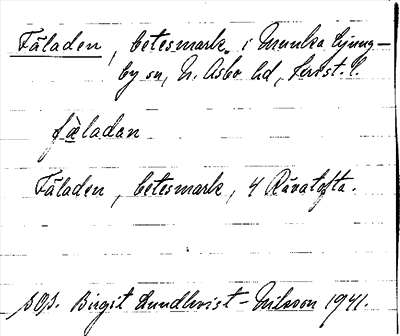 Fäladen, betesmark i Munka Ljung-
by sn, N. Åsbo hd, Krist. l.
fäladan
Fäladen, betesmark, 4 Rävatofta.
SOS. Birgit Lundkvist-Nilsson 1941.